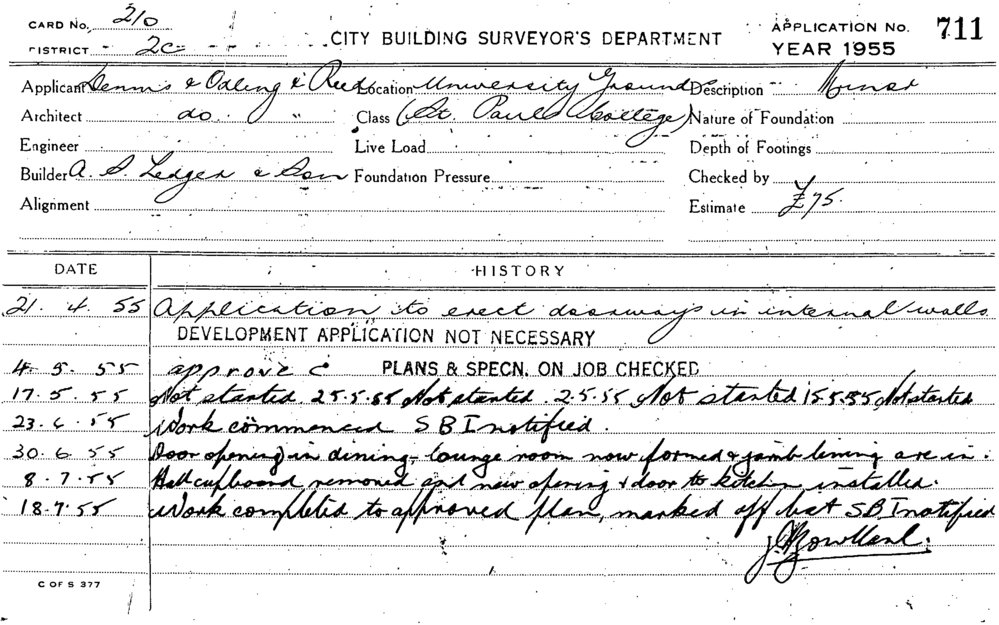 CARD No. 210
DISTRICT 2c
CITY BUILDING SURVEYOR'S DEPARTMENT
APPLICATION No. 711
YEAR 1955
Applicant Dennis & Odling & Reed Location University Ground Description Minor
Architect do " Class (St. Pauls College) Nature of Foundation
Engineer Live Load Depth of Footings
Builder A. S. Ledger & Son Foundation Pressure Checked by
Alignment Estimate £75.
DATE HISTORY
21. 4. 55 Application to erect doorways in internal walls
DEVELOPMENT APPLICATION NOT NECESSARY
4. 5. 55 approve c PLANS & SPECN. ON JOB CHECKED
17. 5. 55 Not started. 25.5.55 Not started. 2.5.55 Not started 15.5.55 Not started
23. 6. 55 Work commenced SBI notified.
30. 6. 55 Door opening in dining-lounge room now formed & jamb lining are in.
8. 7. 55 Hall cupboard removed and new opening & door to kitchen installed.
18. 7. 55 Work completed to approved plan, marked off list SBI notified
C OF S 377